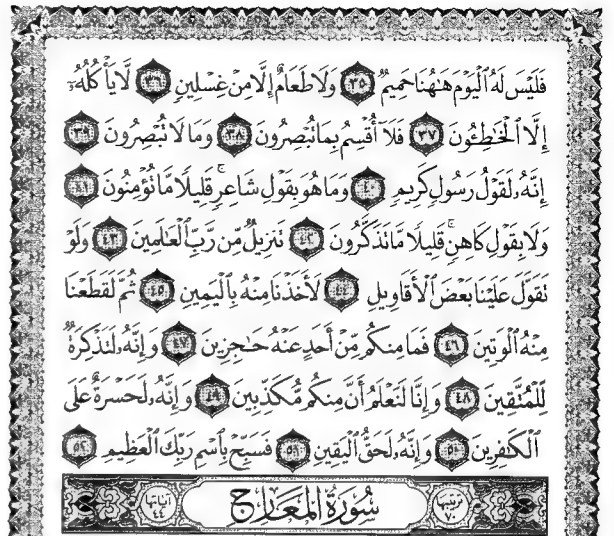 فَلَيْسَ لَهُ ٱلْيَوْمَ هَٰهُنَا حَمِيمٌ ٣٥ وَلَا طَعَامٌ إِلَّا مِنْ غِسْلِينٍ ٣٦ لَّا يَأْكُلُهُۥٓ
إِلَّا ٱلْخَٰطِـُٔونَ ٣٧ فَلَآ أُقْسِمُ بِمَا تُبْصِرُونَ ٣٨ وَمَا لَا تُبْصِرُونَ ٣٩
إِنَّهُۥ لَقَوْلُ رَسُولٍ كَرِيمٍ ٤٠ وَمَا هُوَ بِقَوْلِ شَاعِرٍ ۚ قَلِيلًا مَّا تُؤْمِنُونَ ٤١
وَلَا بِقَوْلِ كَاهِنٍ ۚ قَلِيلًا مَّا تَذَكَّرُونَ ٤٢ تَنزِيلٌ مِّن رَّبِّ ٱلْعَٰلَمِينَ ٤٣ وَلَوْ
تَقَوَّلَ عَلَيْنَا بَعْضَ ٱلْأَقَاوِيلِ ٤٤ لَأَخَذْنَا مِنْهُ بِٱلْيَمِينِ ٤٥ ثُمَّ لَقَطَعْنَا
مِنْهُ ٱلْوَتِينَ ٤٦ فَمَا مِنكُم مِّنْ أَحَدٍ عَنْهُ حَٰجِزِينَ ٤٧ وَإِنَّهُۥ لَتَذْكِرَةٌ
لِّلْمُتَّقِينَ ٤٨ وَإِنَّا لَنَعْلَمُ أَنَّ مِنكُم مُّكَذِّبِينَ ٤٩ وَإِنَّهُۥ لَحَسْرَةٌ عَلَى
ٱلْكَٰفِرِينَ ٥٠ وَإِنَّهُۥ لَحَقُّ ٱلْيَقِينِ ٥١ فَسَبِّحْ بِٱسْمِ رَبِّكَ ٱلْعَظِيمِ ٥٢
ترتيبها ٧٠ سُورَةُ المَعَارِجِ آياتها ٤٤